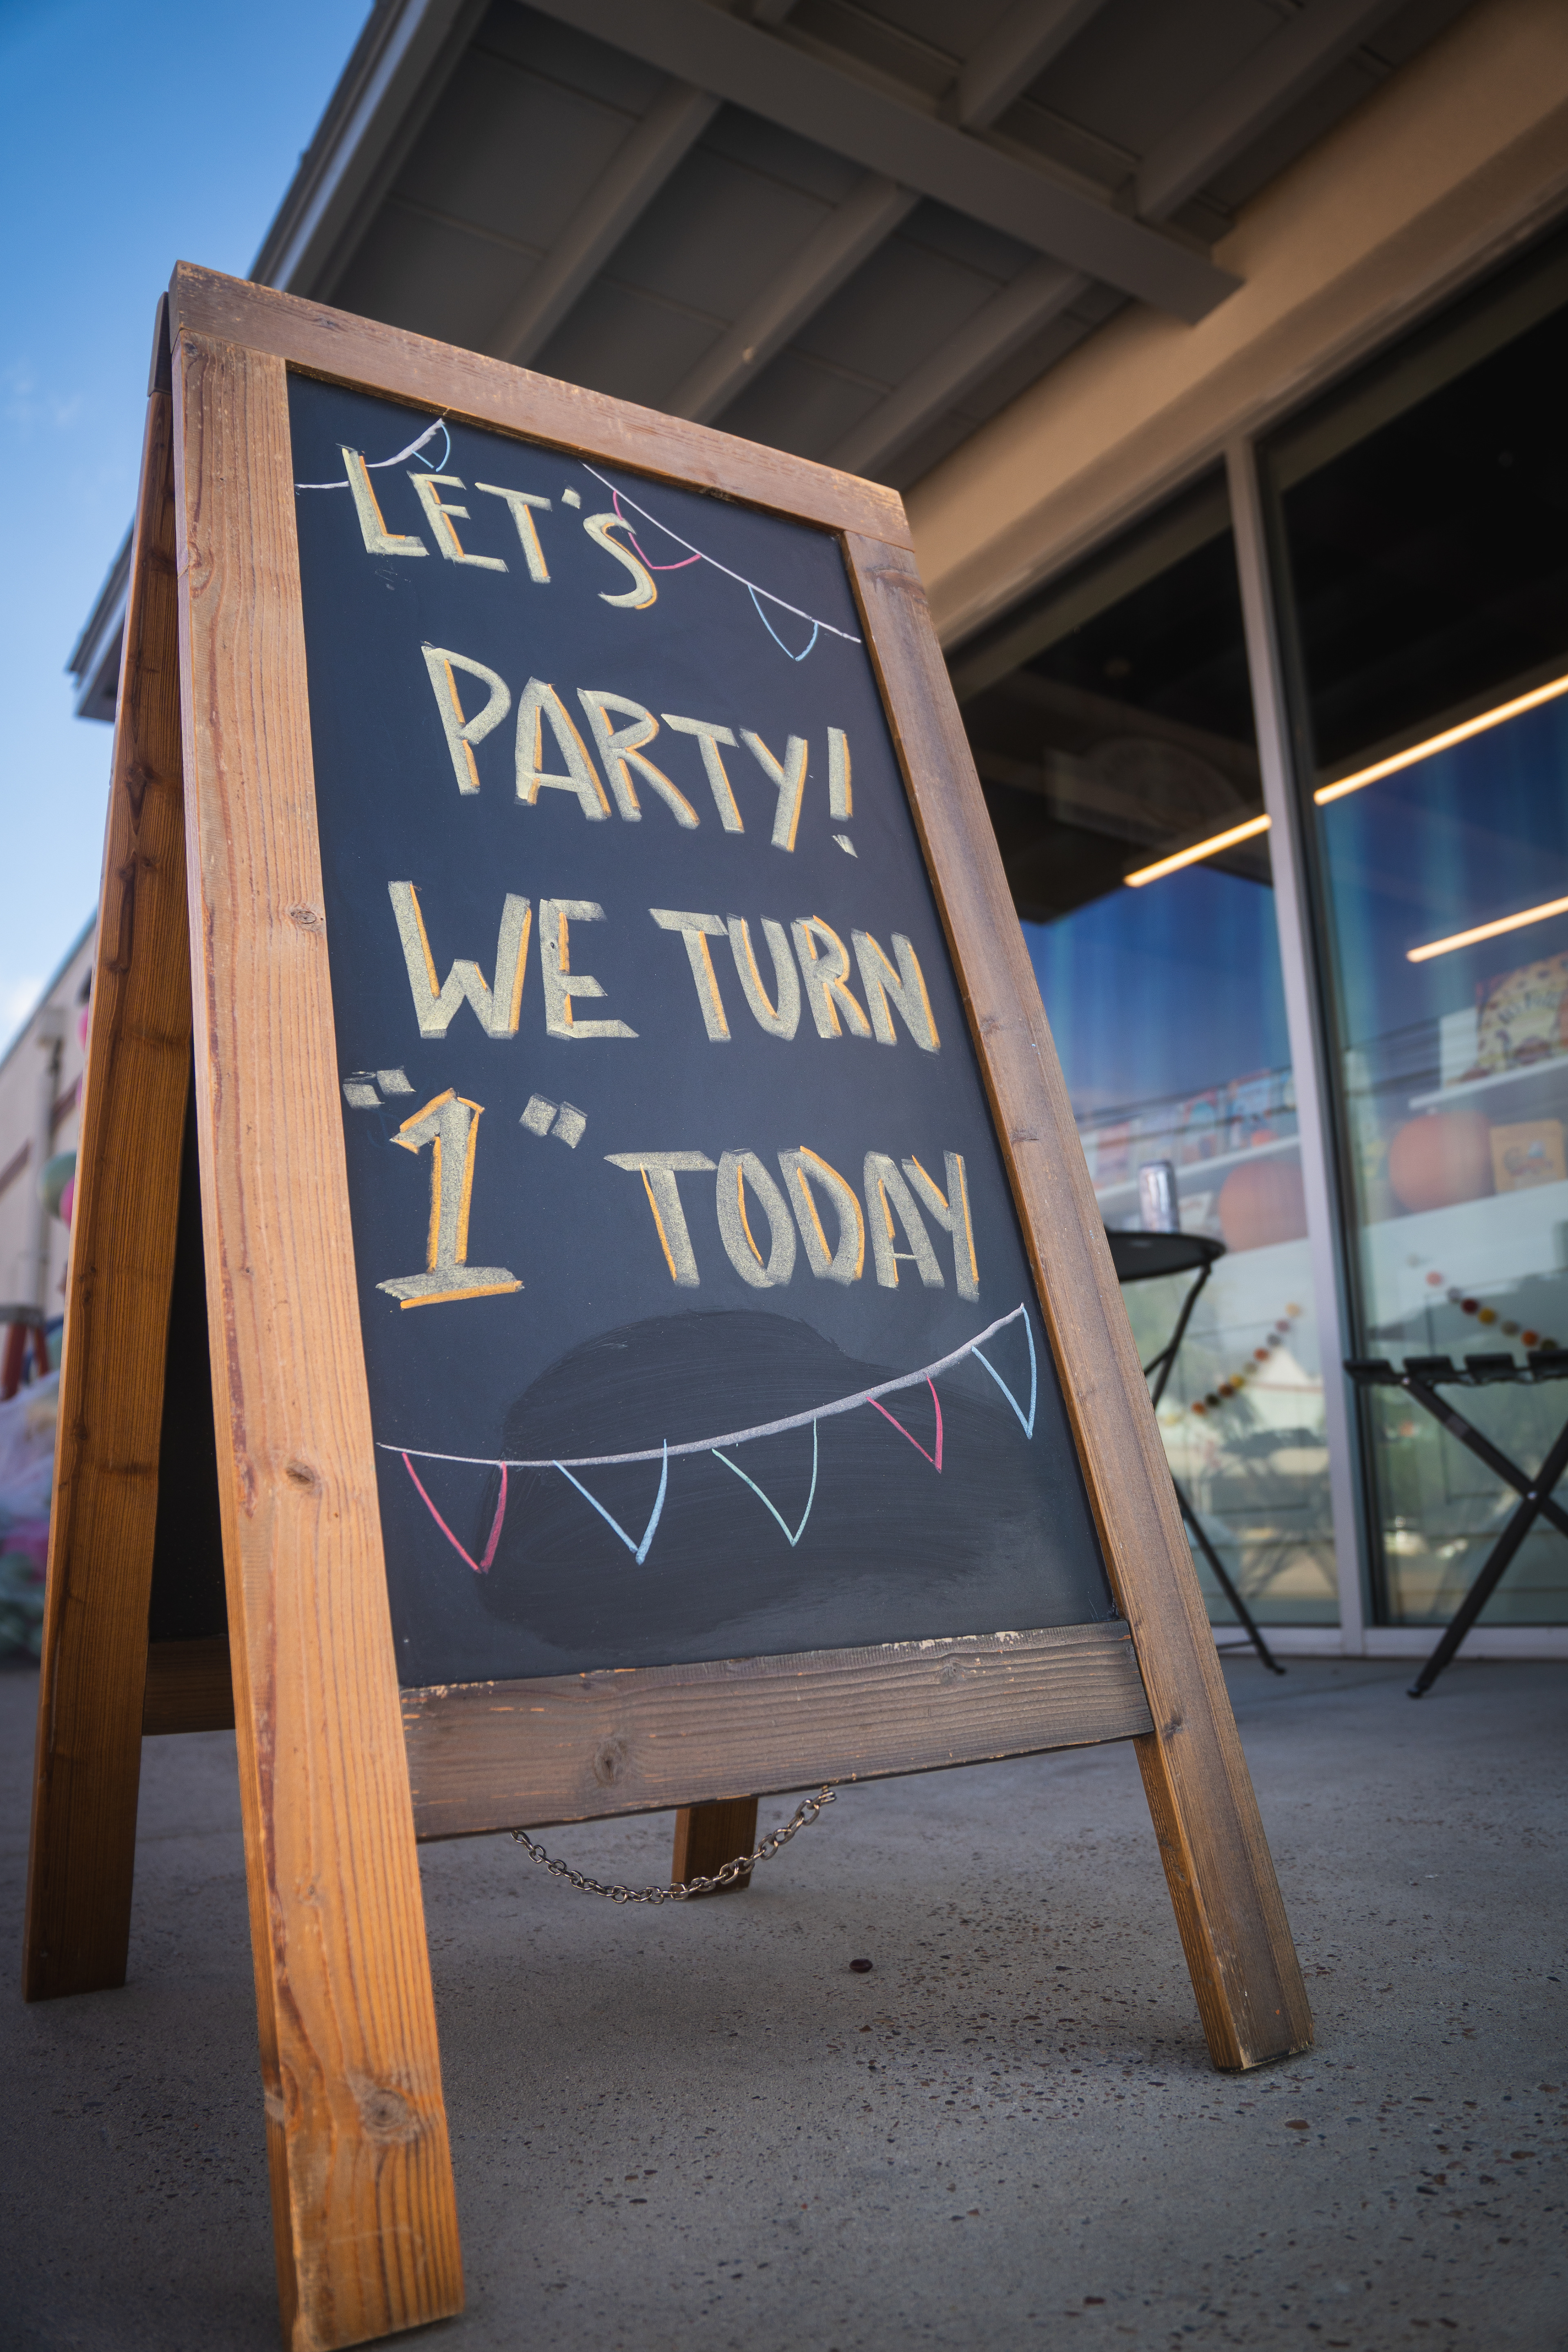 LET'S
PARTY!
WE TURN
"1" TODAY